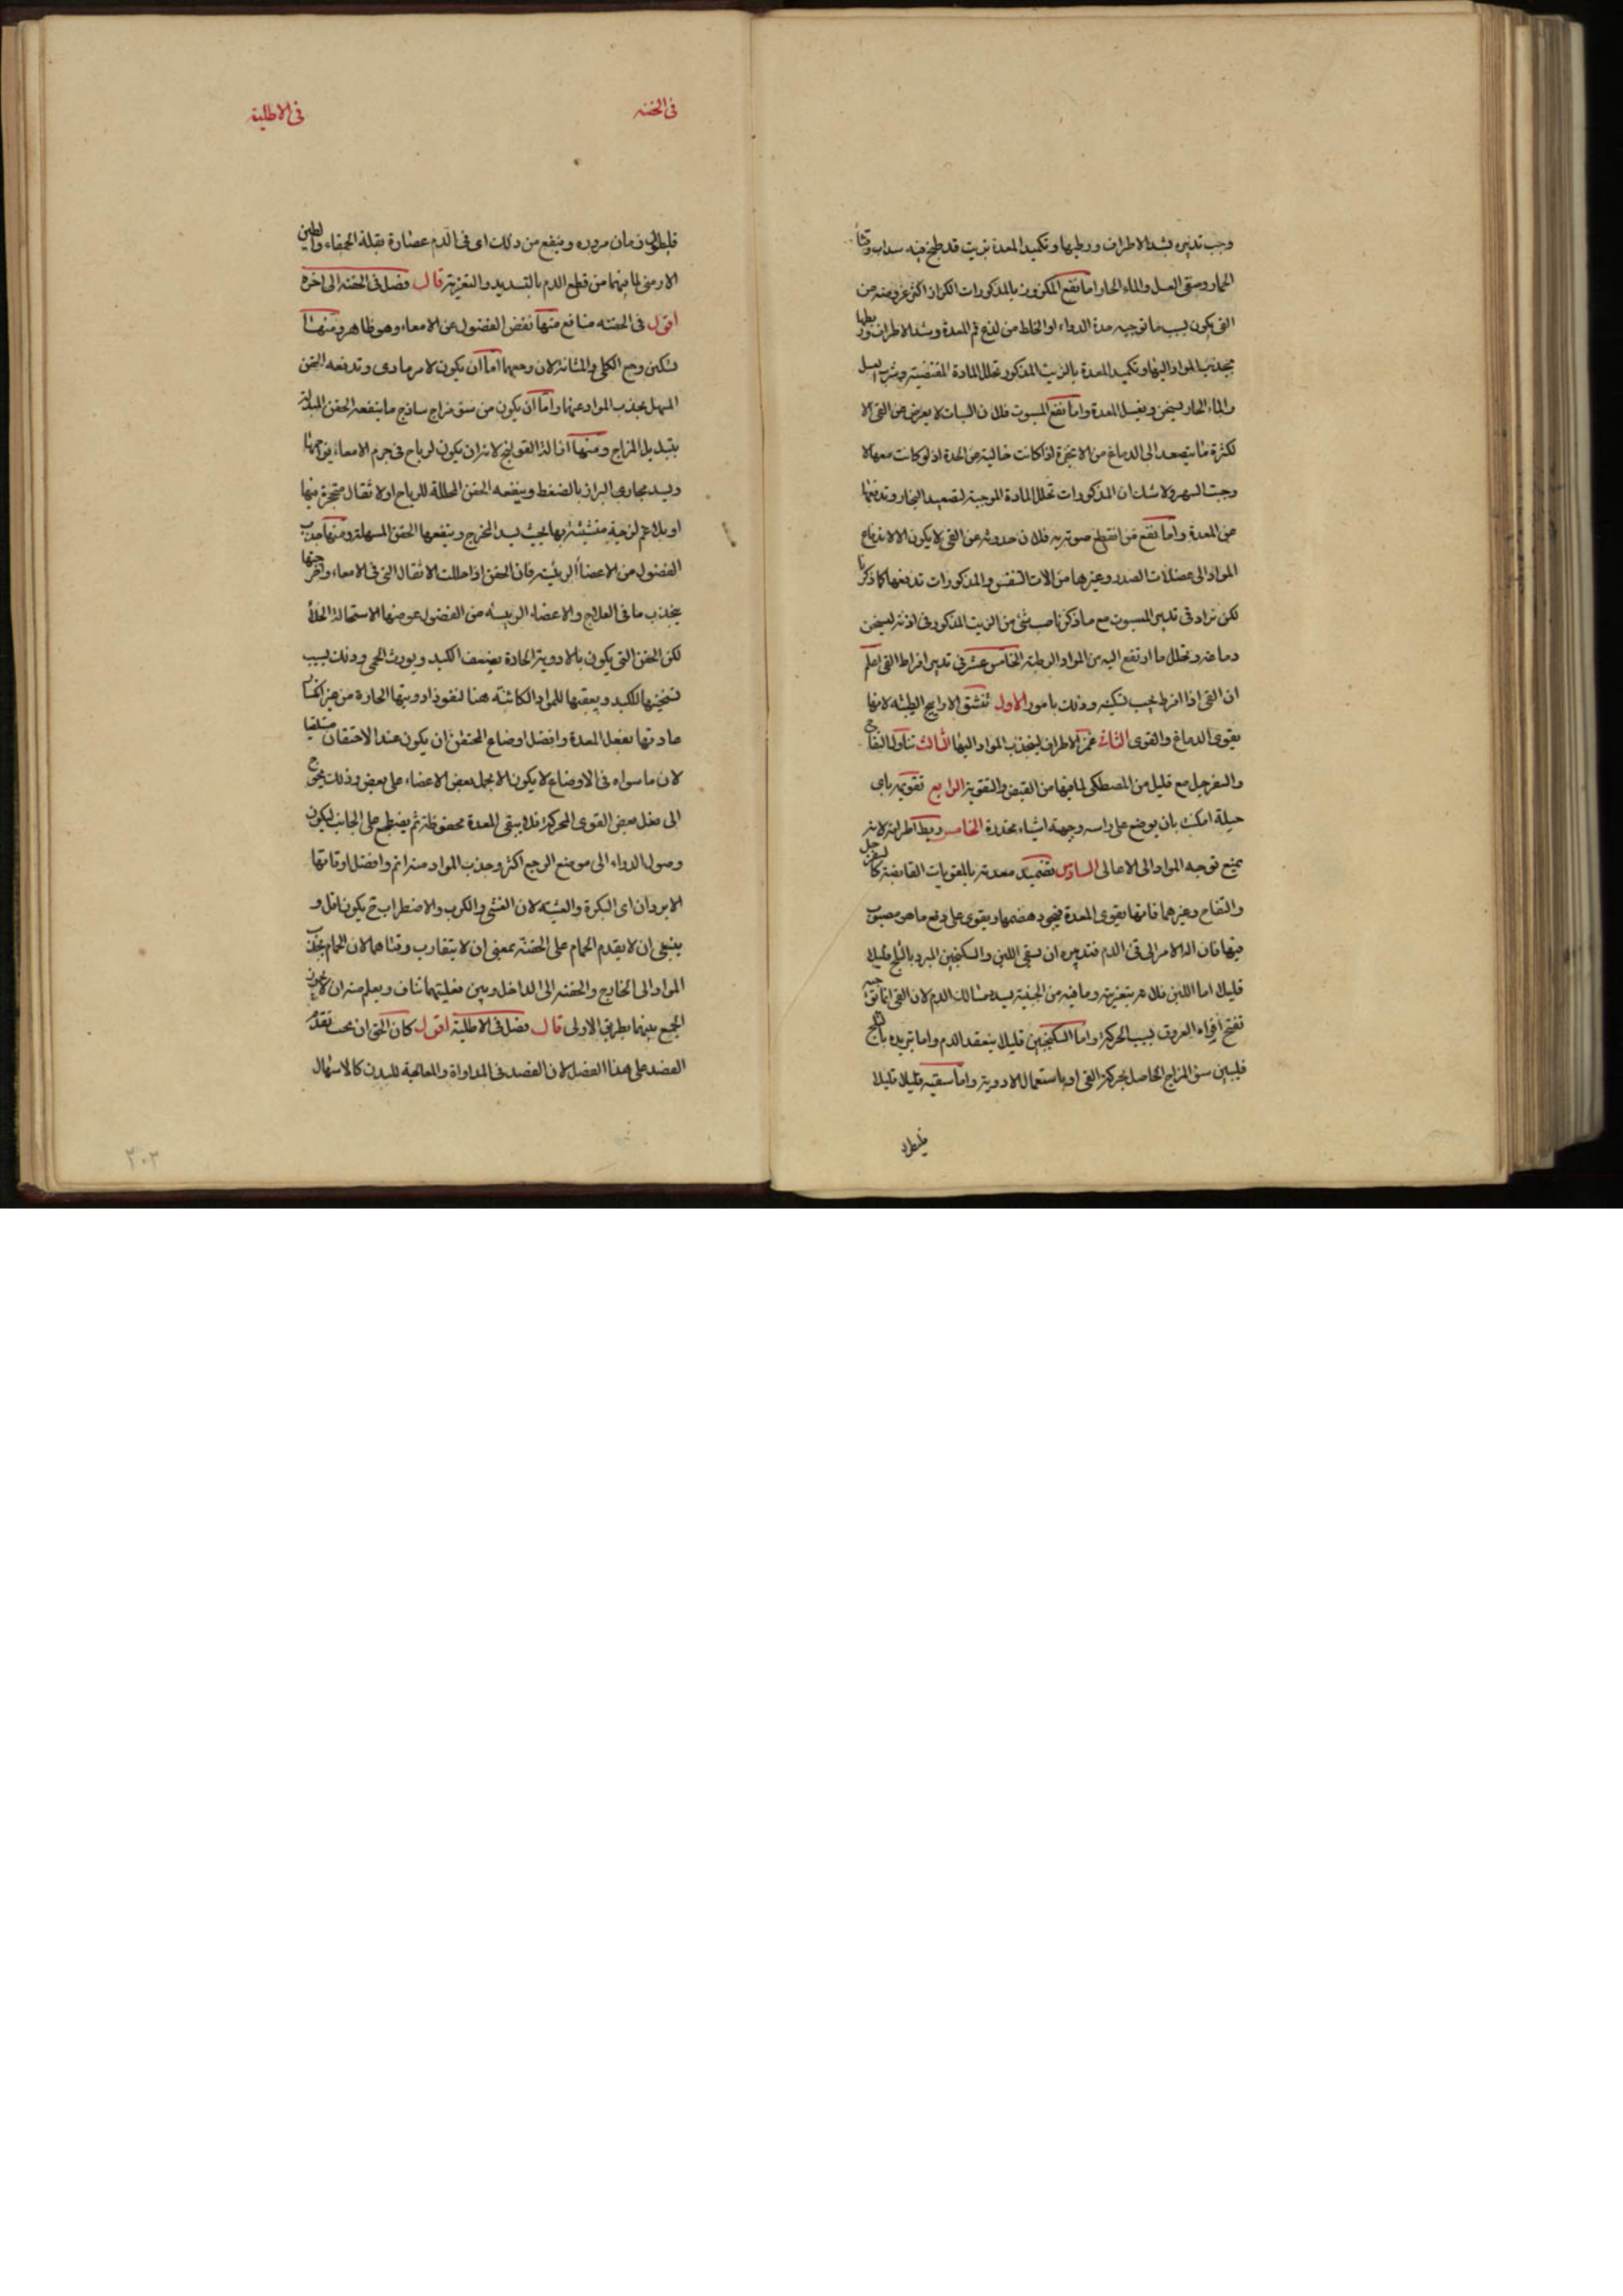 وجب تدبيره بشد الاطراف وربطها وتكميد المعدة بزيت قد طبخ فيه سداب وقثاء
الحمار وسقى العسل والماء الحار اما نفع المكزوز بالمذكورات الكزاز اكثر عروضه من
القى يكون بسبب ما توجبه مدة الدواء او الخلط من لذع فم المعدة وشد الاطراف وربطها
يجذب المواد اليها وتكميد المعدة بالزيت المذكور تحلل المادة المقتضية وشرب العسل
والماء الحار يسخن ويغسل المعدة واما نفع المسبوت فلان السبات لا يعرض من القى الا
لكثرة ما يتصعد الى الدماغ من الابخرة اذا كانت خالية من الحدة اذ لو كانت معها لا
وجبت السهر ولا شك ان المذكورات تحلل المادة الموجبة لتصعيد البخار وتدفعها
عن المعدة واما نفع من انقطع صوته به فلان حدوثه عن القى لا يكون الا لاندفاع
المواد الى عضلات الصدر وغيرها من الات التنفس والمذكورات تدفعها كما ذكرنا
لكن نراد فى تدبير المسبوت مع ما ذكرنا صب شئ من الزيت المذكور فى اذنه ليسخن
دماغه وتحلل ما ارتفع اليه من المواد الرطبة الخامس عشر فى تدبير افراط القى اعلم
ان القى اذا افرط يجب تسكينه وذلك بامور الاول تنشق الاراييح الطيبة لانها
يقوى الدماغ والقوى الثانى غمز الاطراف لينجذب المواد اليها الثالث تناول التفاح
والسفرجل مع قليل من المصطكى لما فيها من القبض والتقوية الرابع تنويمه باى
حيلة امكنت بان يوضع على راسه وجبهته اشياء مخدرة الخامس ربط اطرافه لانه
يمنع توجه المواد الى الاعالى السادس تضميد معدته بالمقويات القابضة كالسفرجل
والتفاح وغيرهما فانها يقوى المعدة فيجود هضمها ويقوى على دفع ما هو مصبوب
فيها فان ال الامر الى قئ الدم فتدبيره ان سقى اللبن والسكنجبين المبرد بالثلج قليلا
قليلا اما اللبن فلانه بتغزيته وما فيه من الجبنية يسد مسالك الدم لان القى انما توجبه
تفتح افواه العروق بسبب الحركة واما السكنجبين قليلا ينعقد الدم واما تبريده بالثلج
فليبين سؤ المزاج الحاصل بحركة القى او باستعمال الادوية واما سقيه قليلا قليلا
فليطول
فى الحقنه
فى الاطلية
فليطول زمان مروره وينفع من ذلك اى فى الدم عصارة بقلة الحمقاء والطين
الارمنى لما فيهما من قطع الدم بالتسديد والتغزية قال فصل فى الحقنه الى اخره
اقول فى الحقنه منافع منها نفض الفضول عن الامعاء وهو ظاهر ومنها
تسكين وجع الكلى والمثانة لان وجعها اما ان يكون لامر مادى وتدفعه الحقن
المسهل بجذب المواد عنها واما ان يكون من سؤ مزاج ساذج ما ينفعه الحقن المبدلة
بتبديل المزاج ومنها ازالة القولنج لانه ان يكون لرياح فى جرم الامعاء يزاحمها
ويسد مجارى البراز بالضغط وينفعه الحقن المحللة للرياح او لاثقال متحجرة فيها
او بلاغم لزجة متشبثة بها بحيث يسد المخرج وينفعها الحقن المسهلة ومنها جذب
الفضول من الاعضاء الرئيسة فان الحقن اذا حللت الاثقال التى فى الامعاء واخرجتها
يجذب ما فى العلاج والاعضاء الرييسه من الفضول عوضها لاستحالة الخلأ
لكن الحقن التى يكون بالادوية الحادة يضعف الكبد ويورث الحمى وذلك بسبب
تسخينها الكبد وبعقنها للمواد الكائنة هنا لنفوذ ادويتها الحارة من غير انكسار
عاديتها بفعل المعدة وافضل اوضاع المحتقن ان يكون عند الاحتقان مستلقيا
لان ما سواه فى الاوضاع لا يكون الا بحمل بعض الاعضاء على بعض وذلك يحوج
الى فعل بعض القوى المحركة فلا يبقى المعدة محفوظة ثم يضطجع على الجانب ليكون
وصول الدواء الى موضع الوجع اكثر وجذب المواد منه اتم وافضل اوقاتها
الابردان اى البكرة والعشيه لان الغشى والكرب والاضطراب ح يكون اقل و
ينبغى ان لا يقدم الحمام على الحقنة بمعنى ان لا يتقارب وقتاهما لان الحمام يجذب
المواد الى الخارج والحقنه الى الداخل وبين فعليهما تناف ويعلم منه ان لا يجوز
الجمع بينهما بطريق الاولى قال فصل فى الاطلية اقول كان الحق ان بحث تقدم
الفصد على هذا الفصل لان الفصد فى المداواة والمعالجة للبدن كالاسهال
٢٠٣